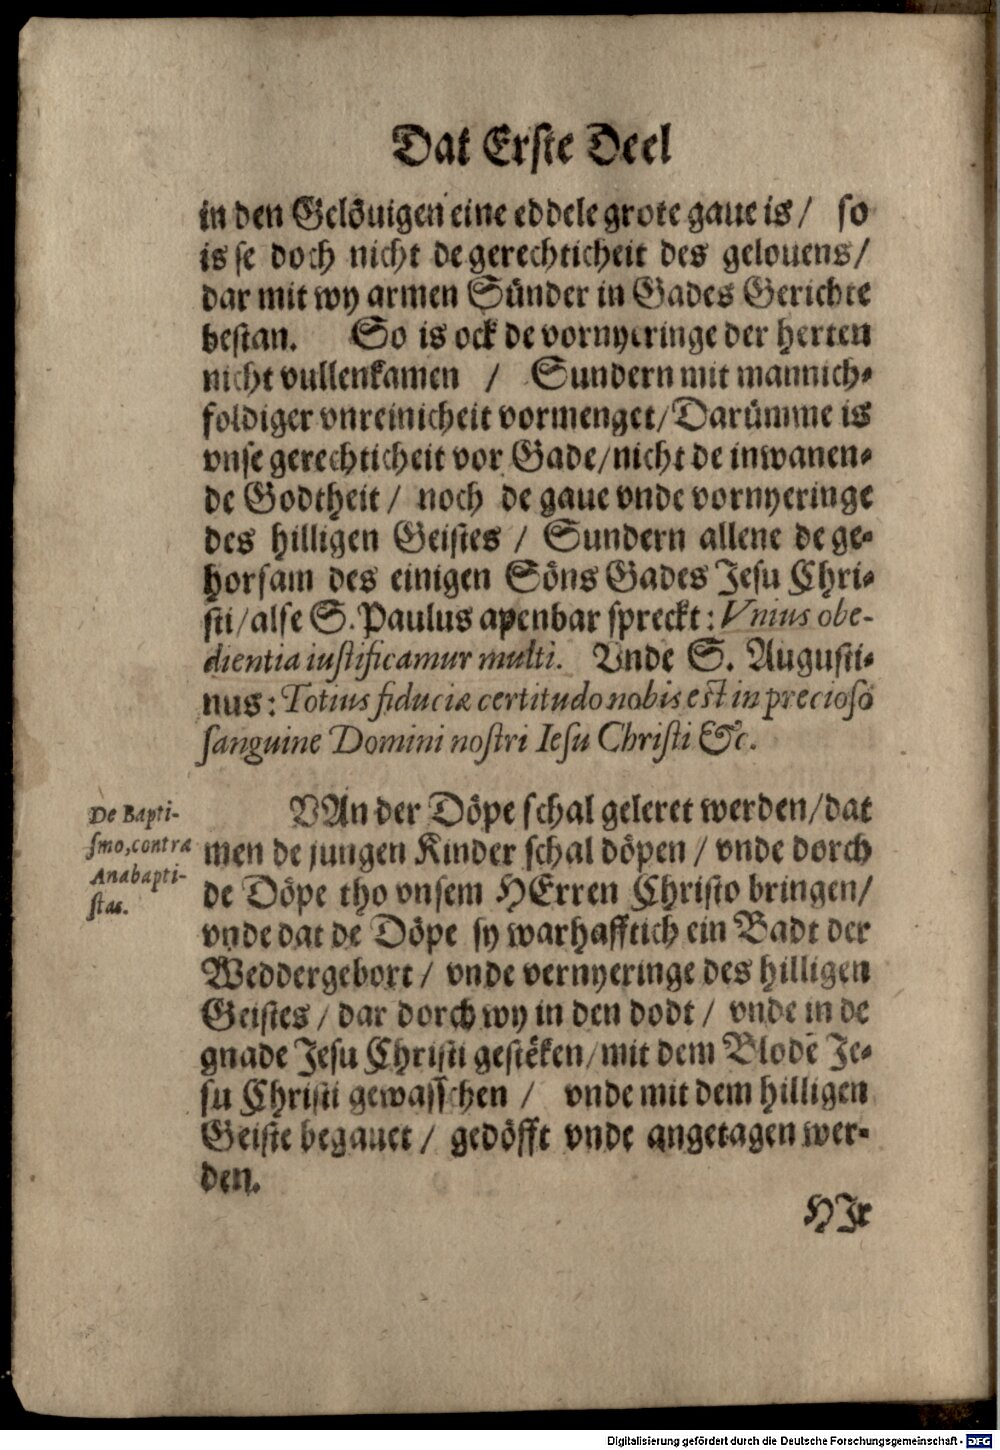 Dat Erste Deel
in den Gelöuigen eine eddele grote gaue is / so
is se doch nicht de gerechticheit des gelouens /
dar mit wy armen Sünder in Gades Gerichte
bestan. So is ock de vornyeringe der herten
nicht vullenkamen / Sundern mit mannich-
foldiger vnreinicheit vormenget / Darümme is
vnse gerechticheit vor Gade / nicht de inwanen-
de Godtheit / noch de gaue vnde vornyeringe
des hilligen Geistes / Sundern allene de ge-
horsam des einigen Söns Gades Jesu Chri-
sti / alse S. Paulus apenbar spreckt: Vnius obe-
dientia iustificamur multi. Vnde S. Augusti-
nus: Totius fiduciæ certitudo nobis est in precioso
sanguine Domini nostri Iesu Christi &c.
De Bapti-
smo, contra
Anabapti-
stas.
VAn der Döpe schal geleret werden / dat
men de jungen Kinder schal döpen / vnde dorch
de Döpe tho vnsem HErren Christo bringen /
vnde dat de Döpe sy warhafftich ein Badt der
Weddergebort / vnde vernyeringe des hilligen
Geistes / dar dorch wy in den dodt / vnde in de
gnade Jesu Christi gestëken / mit dem Blode Je-
su Christi gewasschen / vnde mit dem hilligen
Geiste begauet / gedöfft vnde angetagen wer-
den.
HIr
Digitalisierung gefördert durch die Deutsche Forschungsgemeinschaft - DFG